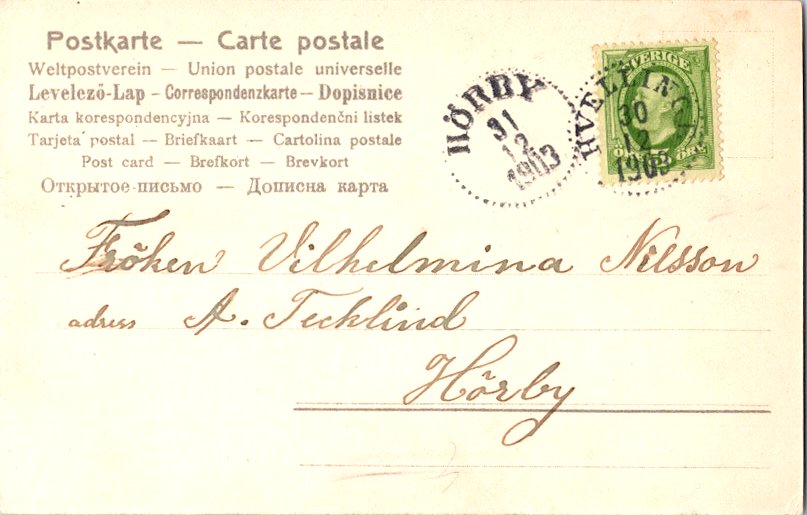 Postkarte — Carte postale
Weltpostverein — Union postale universelle
Levelező-Lap – Correspondenzkarte – Dopisnice
Karta korespondencyjna — Korespondenční listek
Tarjeta postal — Briefkaart — Cartolina postale
Post card — Brefkort — Brevkort
Открытое письмо — Дописна карта
HÖRBY
31
12
1903
SVERIGE
ÖRE
HVELLINGE
30
12
1903
Fröken Vilhelmina Nilsson
adress A. Tecklind
Hörby